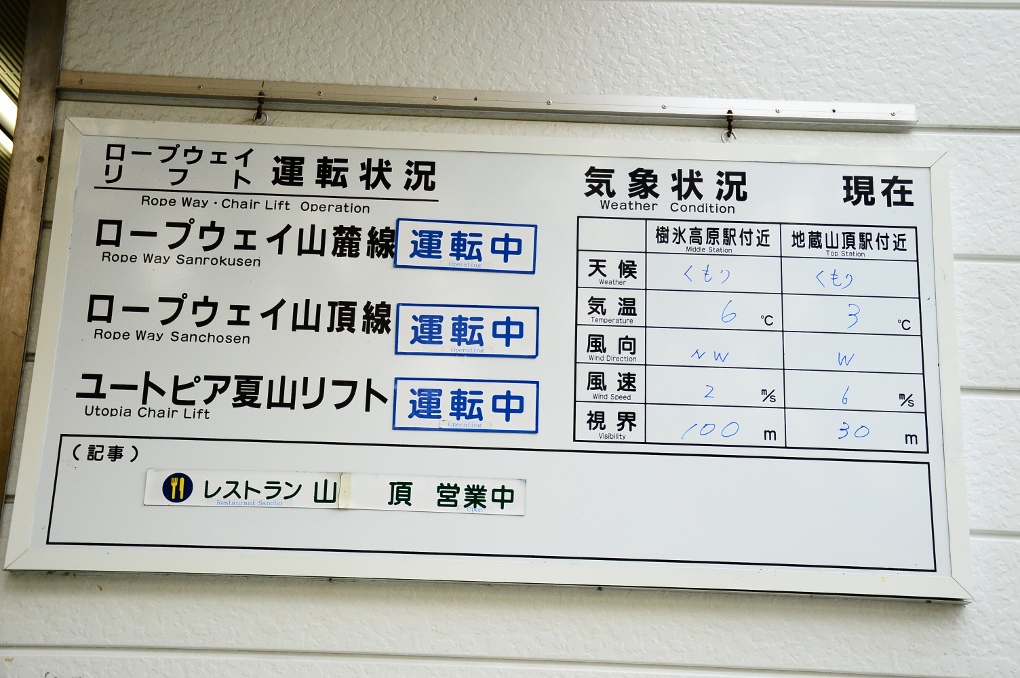 ロープウェイ
リフト 運転状況
Rope Way・Chair Lift Operation
ロープウェイ山麓線 運転中
Rope Way Sanrokusen Operating
ロープウェイ山頂線 運転中
Rope Way Sanchosen Operating
ユートピア夏山リフト 運転中
Utopia Chair Lift Operating
気象状況 現在
Weather Condition
樹氷高原駅付近 地蔵山頂駅付近
Middle Station Top Station
天候 くもり くもり
Weather
気温 6 ℃ 3 ℃
Temperature
風向 NW W
Wind Direction
風速 2 m/s 6 m/s
Wind Speed
視界 100 m 30 m
Visibility
(記事)
レストラン 山頂 営業中
Restaurant Sancho Open